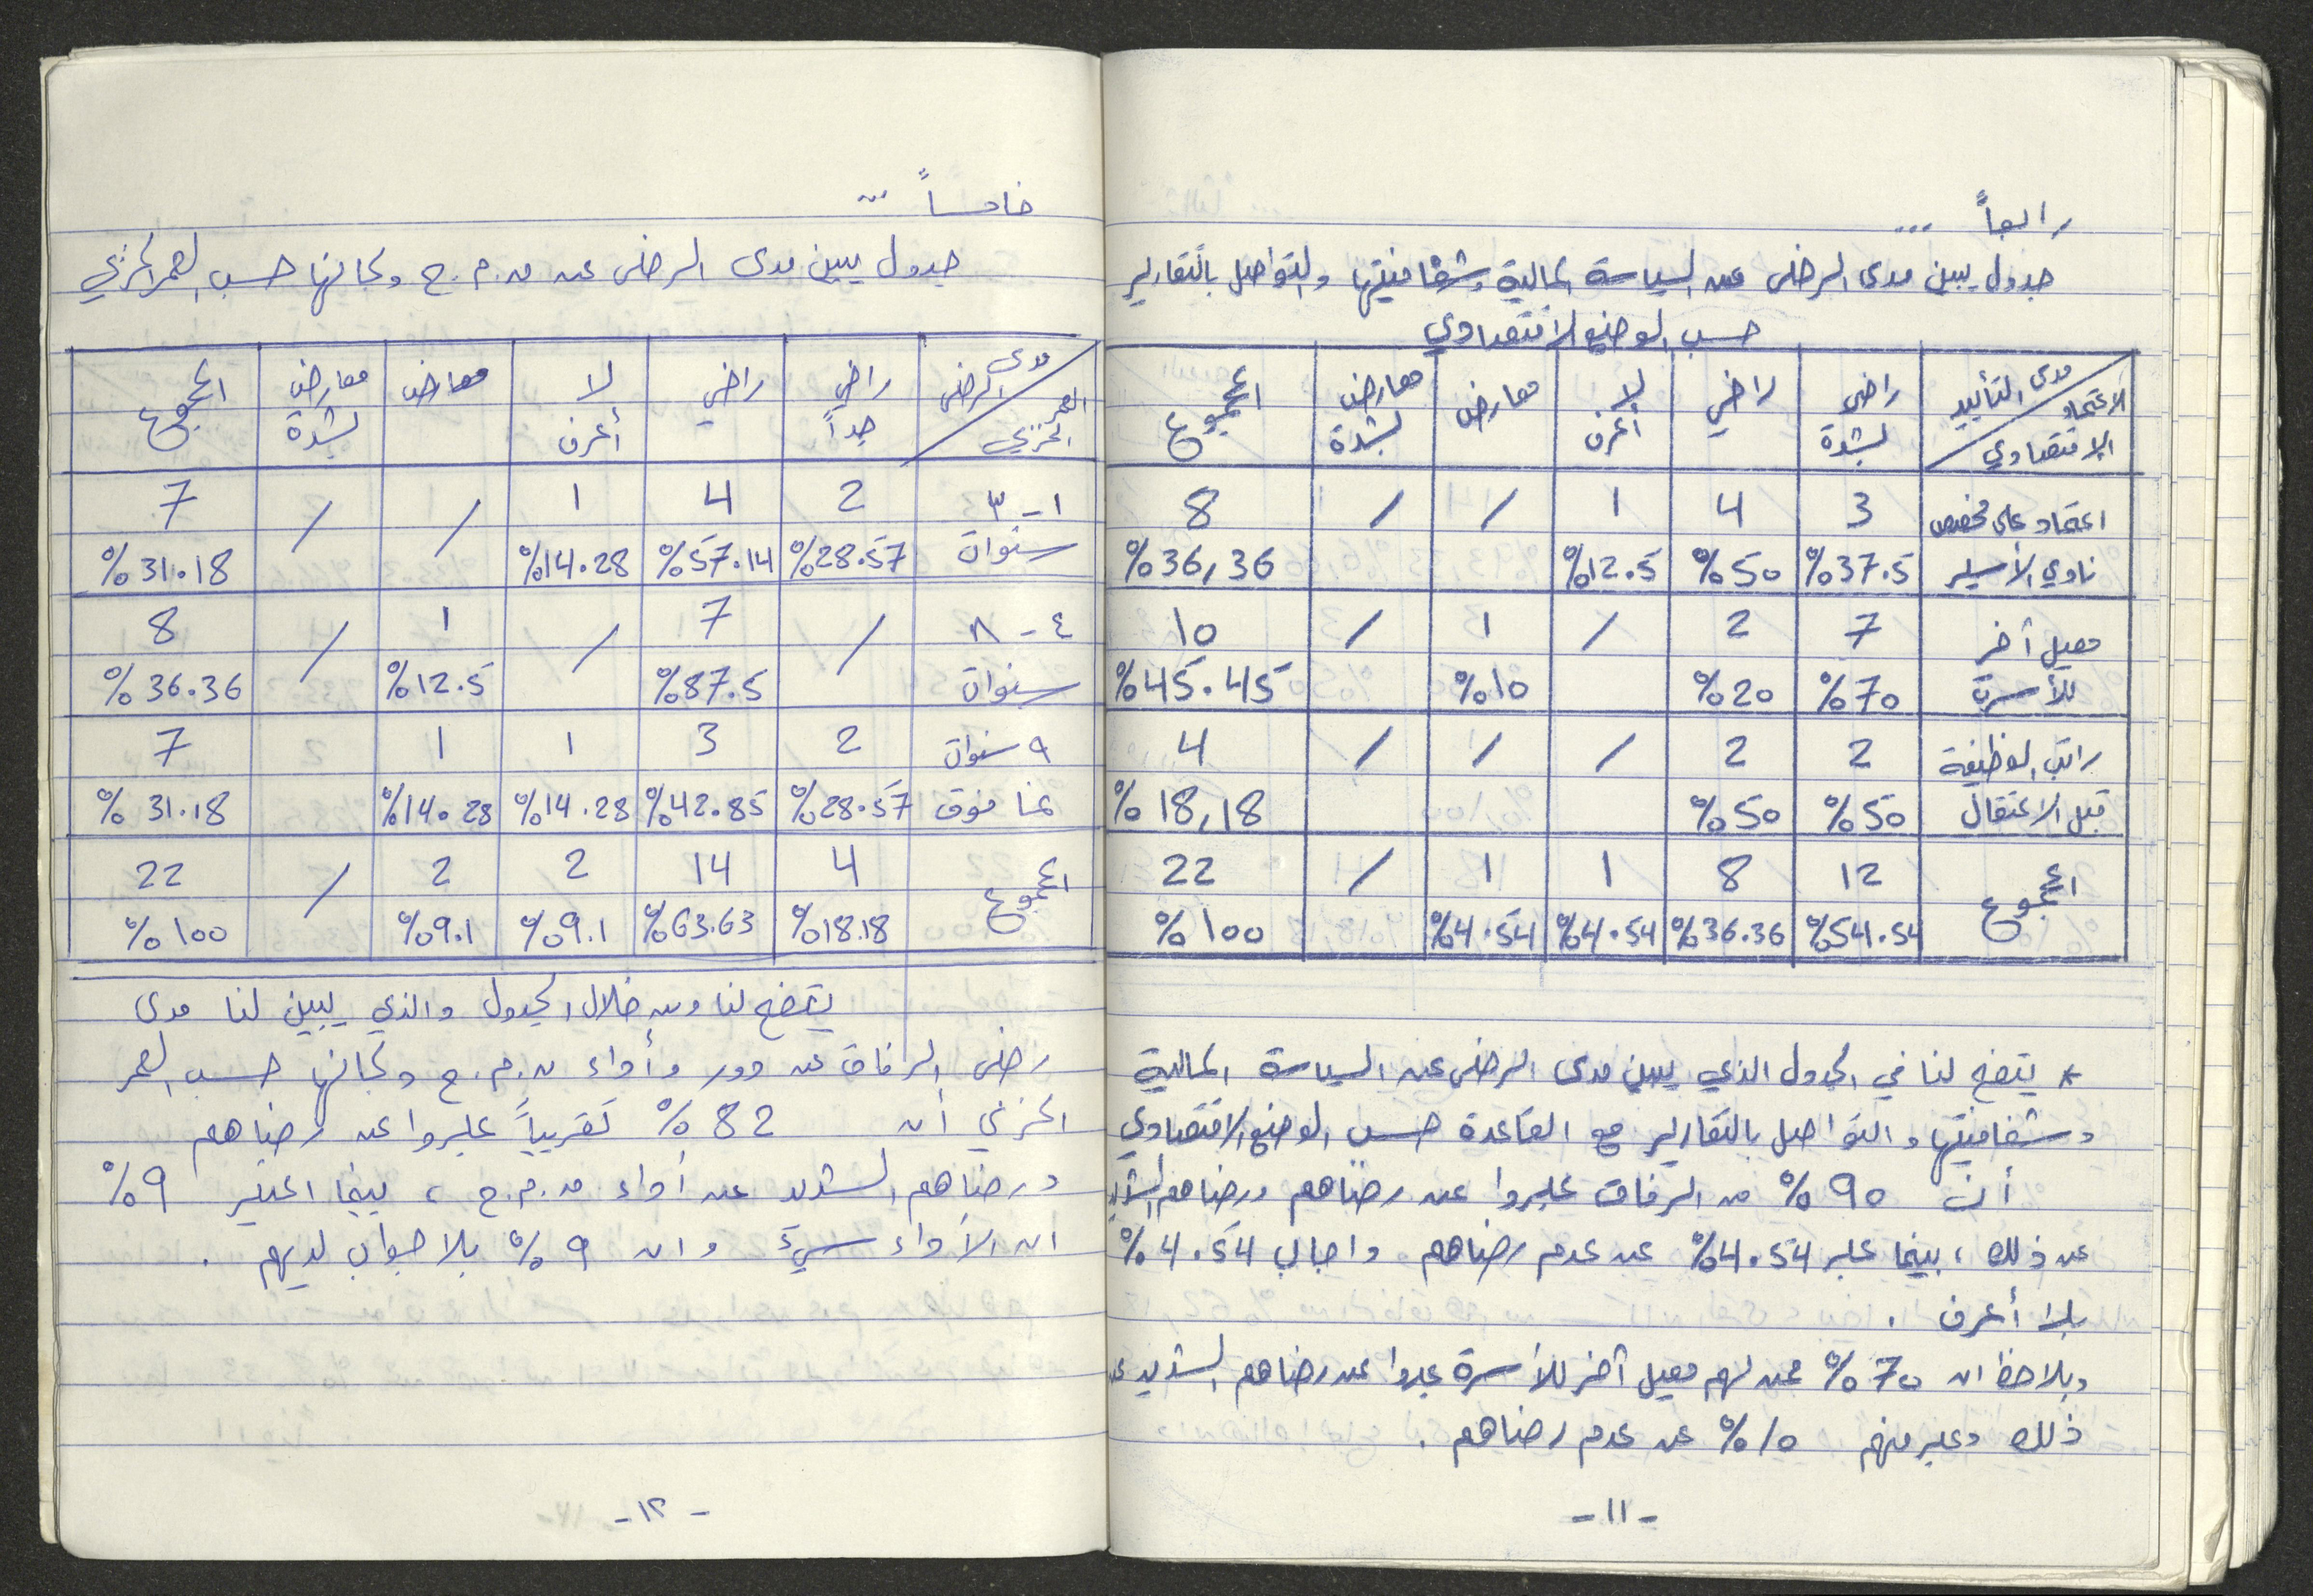 رابعاً ...
جدول يبين مدى الرضى عن السياسة المالية وشفافيتها والتواصل بالتقارير
حسب الوضع الاقتصادي
مدى التأييد / الاعتماد الاقتصادي | راضي بشدة | راضي | لا أعرف | معارض | معارض بشدة | المجموع
اعتماد على مخصص | 3 | 4 | 1 | / | / | 8
نادي الأسير | %37.5 | %50 | %12.5 | | | %36,36
معيل آخر | 7 | 2 | / | 1 | / | 10
للأسرة | %70 | %20 | | %10 | | %45.45
راتب الوظيفة | 2 | 2 | / | / | / | 4
قبل الاعتقال | %50 | %50 | | | | %18,18
المجموع | 12 | 8 | 1 | 1 | / | 22
%54.54 | %36.36 | %4.54 | %4.54 | | %100
* يتضح لنا في الجدول الذي يبين مدى الرضى عن السياسة المالية
وشفافيتها والتواصل بالتقارير مع القاعدة حسب الوضع الاقتصادي
أن 90% من الرفاق عبروا عن رضاهم ورضاهم الشديد
عن ذلك ، بينما عبر 4.54% عن عدم رضاهم واجاب 4.54%
بلا أعرف .
ويلاحظ ان 70% ممن لهم معيل آخر للأسرة عبروا عن رضاهم الشديد عن
ذلك وعبر منهم 10% عن عدم رضاهم .
- ١١ -
خامساً ...
جدول يبين مدى الرضى عن م.م.ح ولجانها حسب العمر الحزبي
مدى الرضى / العمر الحزبي | راضي جداً | راضي | لا أعرف | معارض | معارض بشدة | المجموع
١-٣ | 2 | 4 | 1 | / | / | 7
سنوات | %28.57 | %57.14 | %14.28 | | | %31.18
٤-٨ | / | 7 | / | 1 | / | 8
سنوات | | %87.5 | | %12.5 | | %36.36
٩ سنوات | 2 | 3 | 1 | 1 | | 7
فما فوق | %28.57 | %42.85 | %14.28 | %14.28 | | %31.18
المجموع | 4 | 14 | 2 | 2 | / | 22
%18.18 | %63.63 | %9.1 | %9.1 | | %100
يتضح لنا ومن خلال الجدول والذي يبين لنا مدى
رضى الرفاق عن دور وأداء م.م.ح ولجانها حسب العمر
الحزبي أن 82% تقريباً عبروا عن رضاهم
ورضاهم الشديد عن أداء م.م.ح ، بينما اعتبر 9%
ان الأداء سيئ وان 9% بلا جواب لديهم .
- ١٢ -